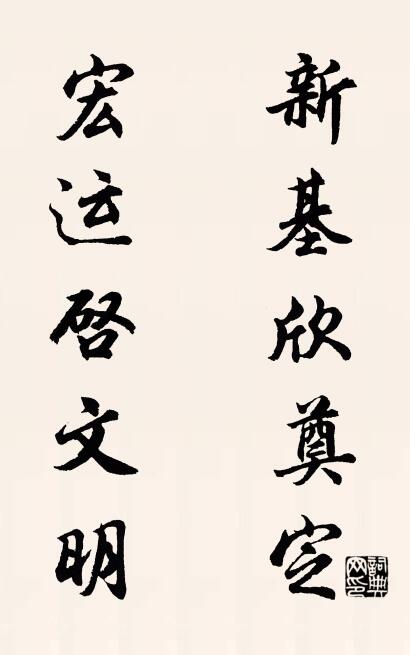 新基欣奠定
宏运启文明
詞典网印